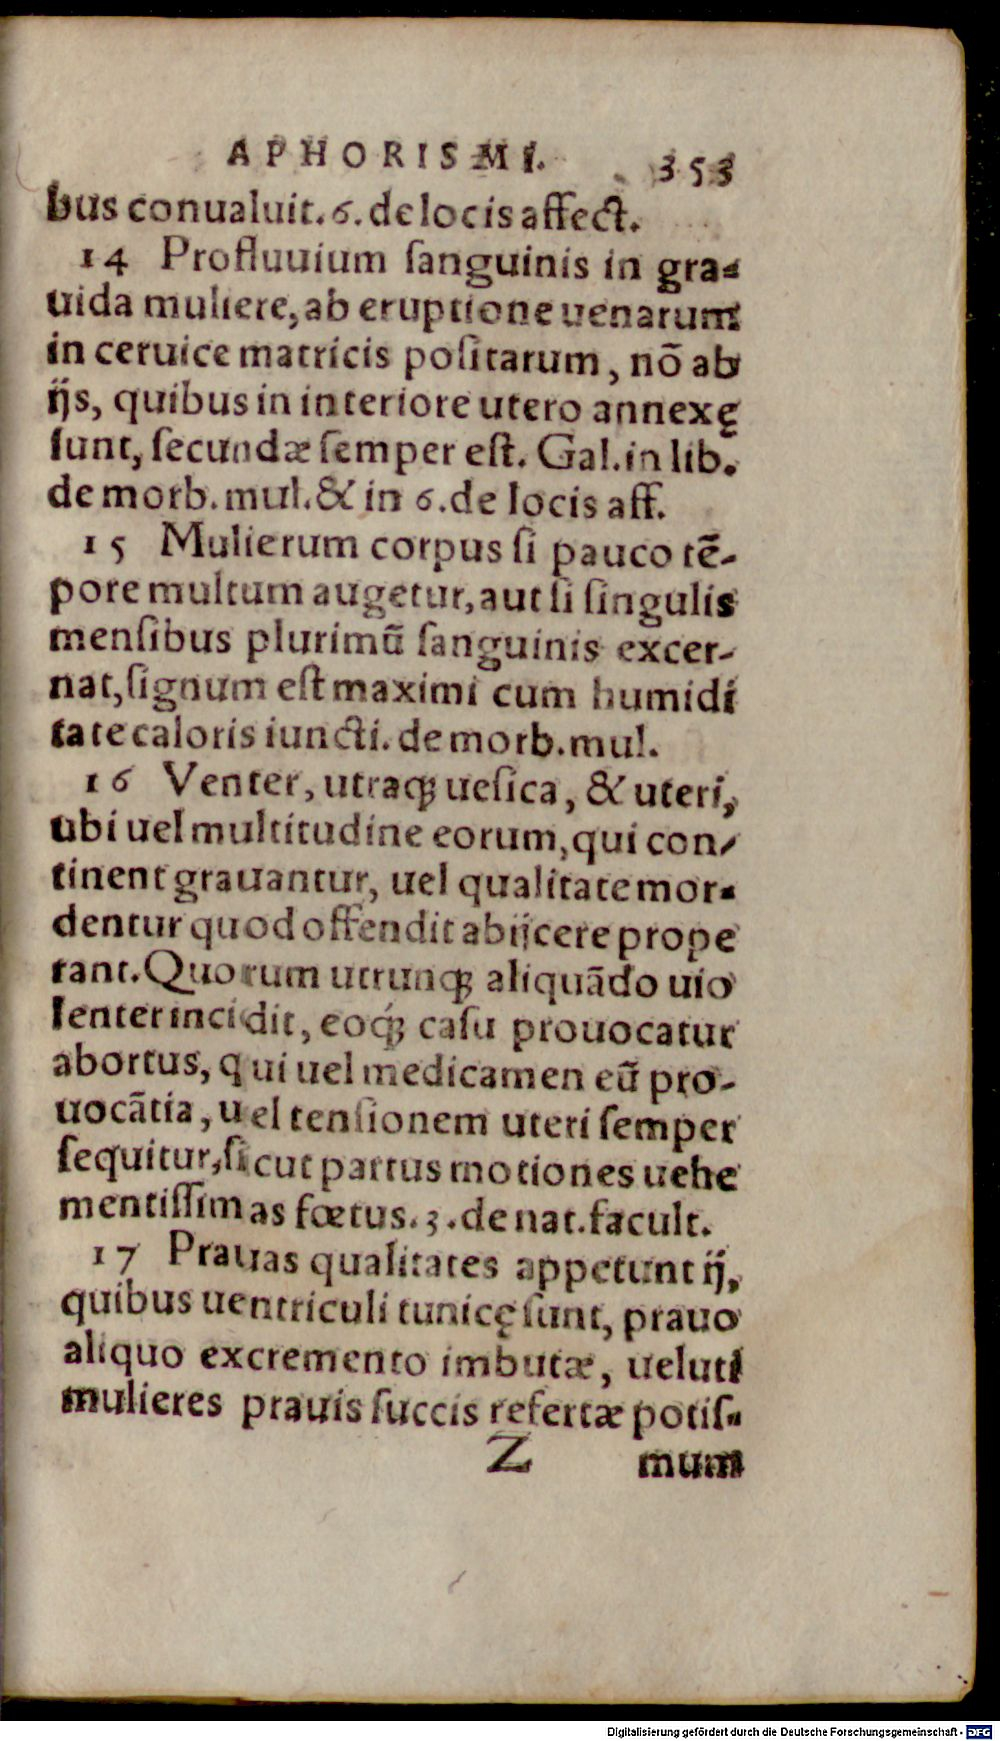 APHORISMI. 353
bus conualuit. 6. de locis affect.
14 Profluuium ſanguinis in gra-
uida muliere, ab eruptione uenarum
in ceruice matricis poſitarum, nõ ab
ijs, quibus in interiore utero annexę
ſunt, ſecundæ ſemper eſt. Gal. in lib.
de morb. mul. & in 6. de locis aff.
15 Mulierum corpus ſi pauco tẽ-
pore multum augetur, aut ſi ſingulis
menſibus plurimũ ſanguinis excer-
nat, ſignum eſt maximi cum humidi
tate caloris iuncti. de morb. mul.
16 Venter, utraqꝫ ueſica, & uteri,
ubi uel multitudine eorum, qui con-
tinent grauantur, uel qualitate mor-
dentur quod offendit abijcere prope
rant. Quorum utrunqꝫ aliquãdo uio
lenter incidit, eoq́ꝫ caſu prouocatur
abortus, qui uel medicamen eũ pro-
uocãtia, uel tenſionem uteri ſemper
ſequitur, ſicut partus motiones uehe
mentiſſimas fœtus. 3. de nat. facult.
17 Prauas qualitates appetunt ij,
quibus uentriculi tunicę ſunt, prauo
aliquo excremento imbutæ, ueluti
mulieres prauis ſuccis refertæ potiſ-
Z mum
Digitalisierung gefördert durch die Deutsche Forschungsgemeinschaft - DFG